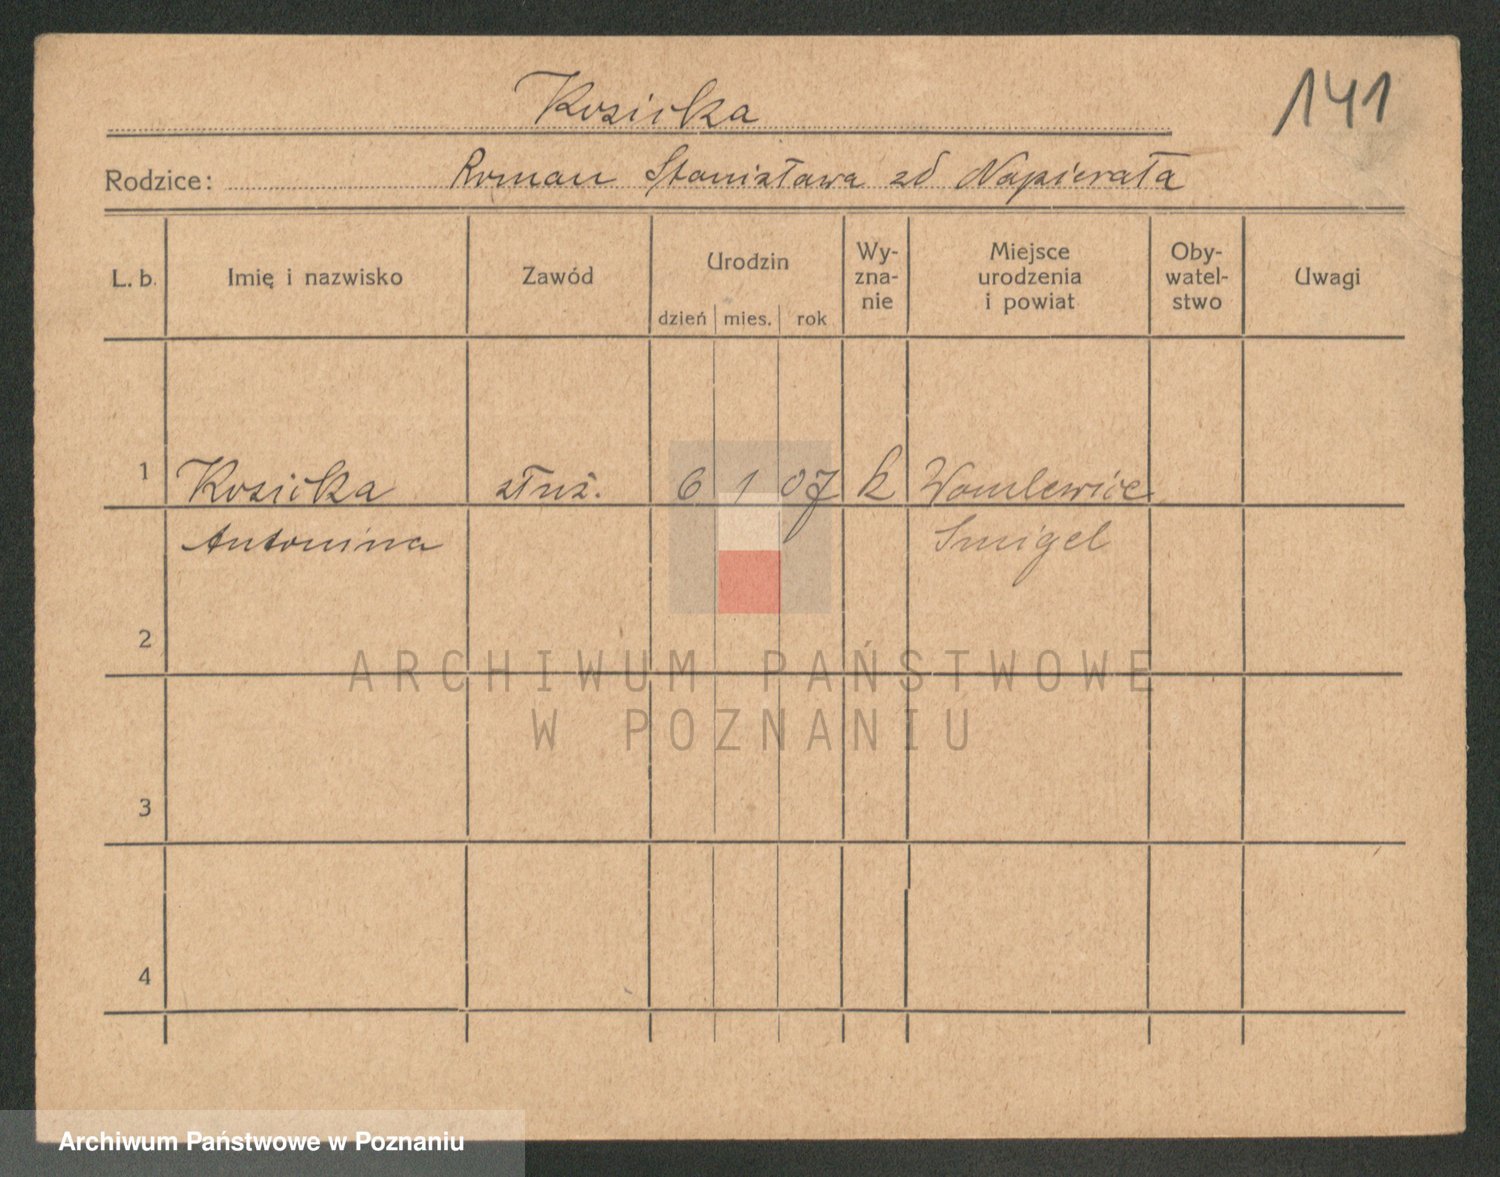 Kosicka
141
Rodzice: Roman Stanisława zd Napierała
L. b. Imię i nazwisko Zawód Urodzin Wy-zna-nie Miejsce urodzenia i powiat Oby-watel-stwo Uwagi
dzień mies. rok
1 Kosicka służ. 6 1 07 k
Antonina Smigel
2
3
4
ARCHIWUM PAŃSTWOWE
W POZNANIU
Archiwum Państwowe w Poznaniu